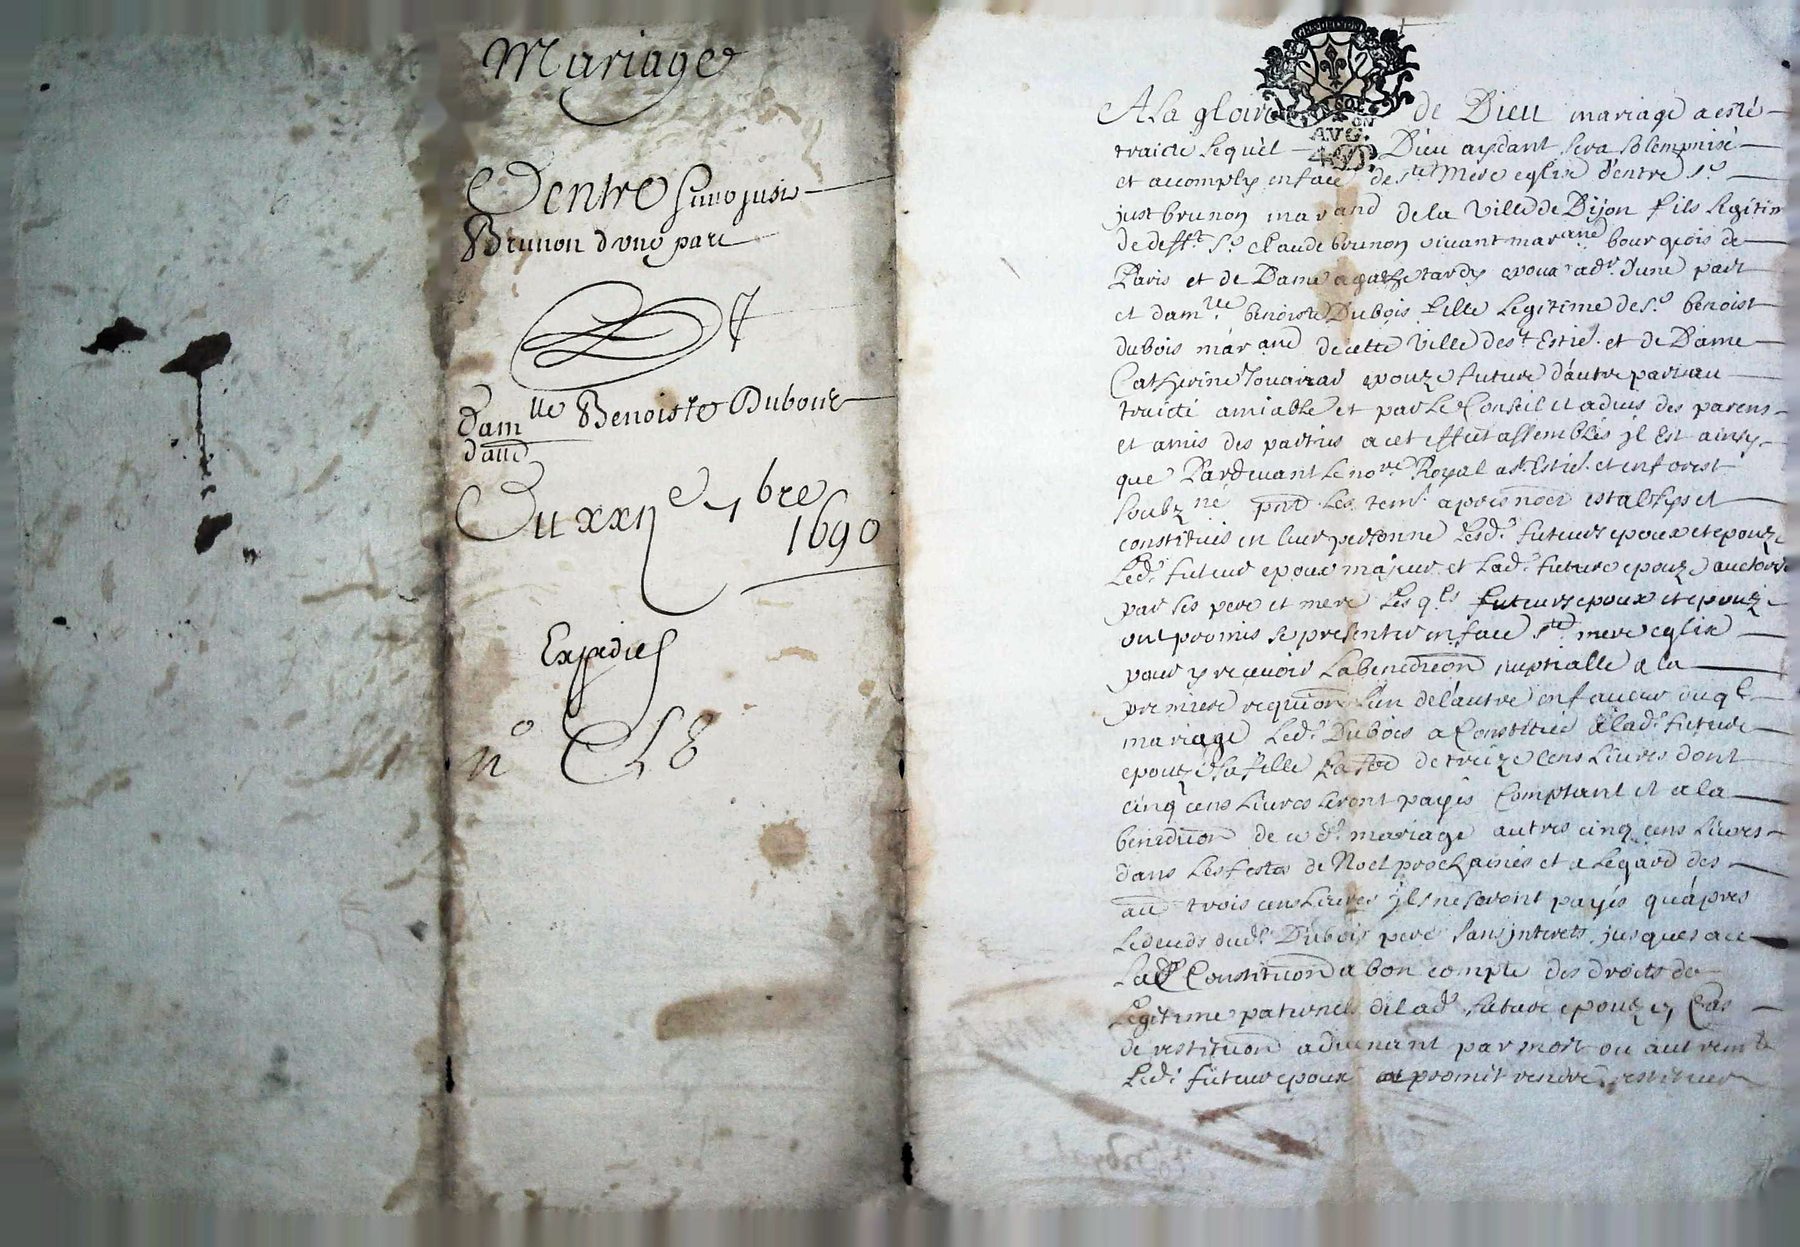 Mariage
Dentre Just
Brunon dune part
&
Dam lle Benoiste Dubois
daud
Du xxii e 7bre
1690
Expedies
n°
A la gloire de Dieu mariage a esté
traicté lequel Dieu aydant sera solempnisé
et accomply en face de ste Mere eglise d'entre sr
just brunon marand de la Ville de Dijon fils legitim
de defft sr claude brunon vivant marand bourgeois de
Paris et de Dame agathe tardy epoux adr d'une part
et damlle benoiste Dubois fille legitime de sr benoist
dubois marand de cette Ville de st Estie. et de Dame
Catherine epouze future d'autre part au
traicté amiable et par le Conseil et aduis des parens
et amis des parties a cet effect assemblés il Est ainsy
que Pardevant le nore Royal a st Estie. et en forest
soubzne pnt. Les tem. apres noes establys et
constitues en leur personne Lesd. futeurs epoux et epouze
Led. futeur epoux majeur et Lad. future epouze auctorisé
par ses pere et mere Lesqls futeurs epoux et epouze
ont promis se presenter en face ste mere eglise
pour y recevoir La benediction nuptialle a la
premiere requion l'un de l'autre en faveur duql
mariage Led. Dubois a Constitué a lad. future
epouze sa fille de treize cens Livres dont
cinq cens Livres seront payés Comptant et a la
benediction de ced. mariage autres cinq cens Livres
dans les festes de Noel prochaines et a Legard des
au trois cens Livres ils ne seront payés qu'apres
Le deceds dud. Dubois pere sans interets jusques a ce
Lad. Constitution a bon compte des droits de
Legitime paternels de lad. future epouze Cas
de restitution advenant par mort ou autremt
Led. futeur epoux a promit rendre restituer